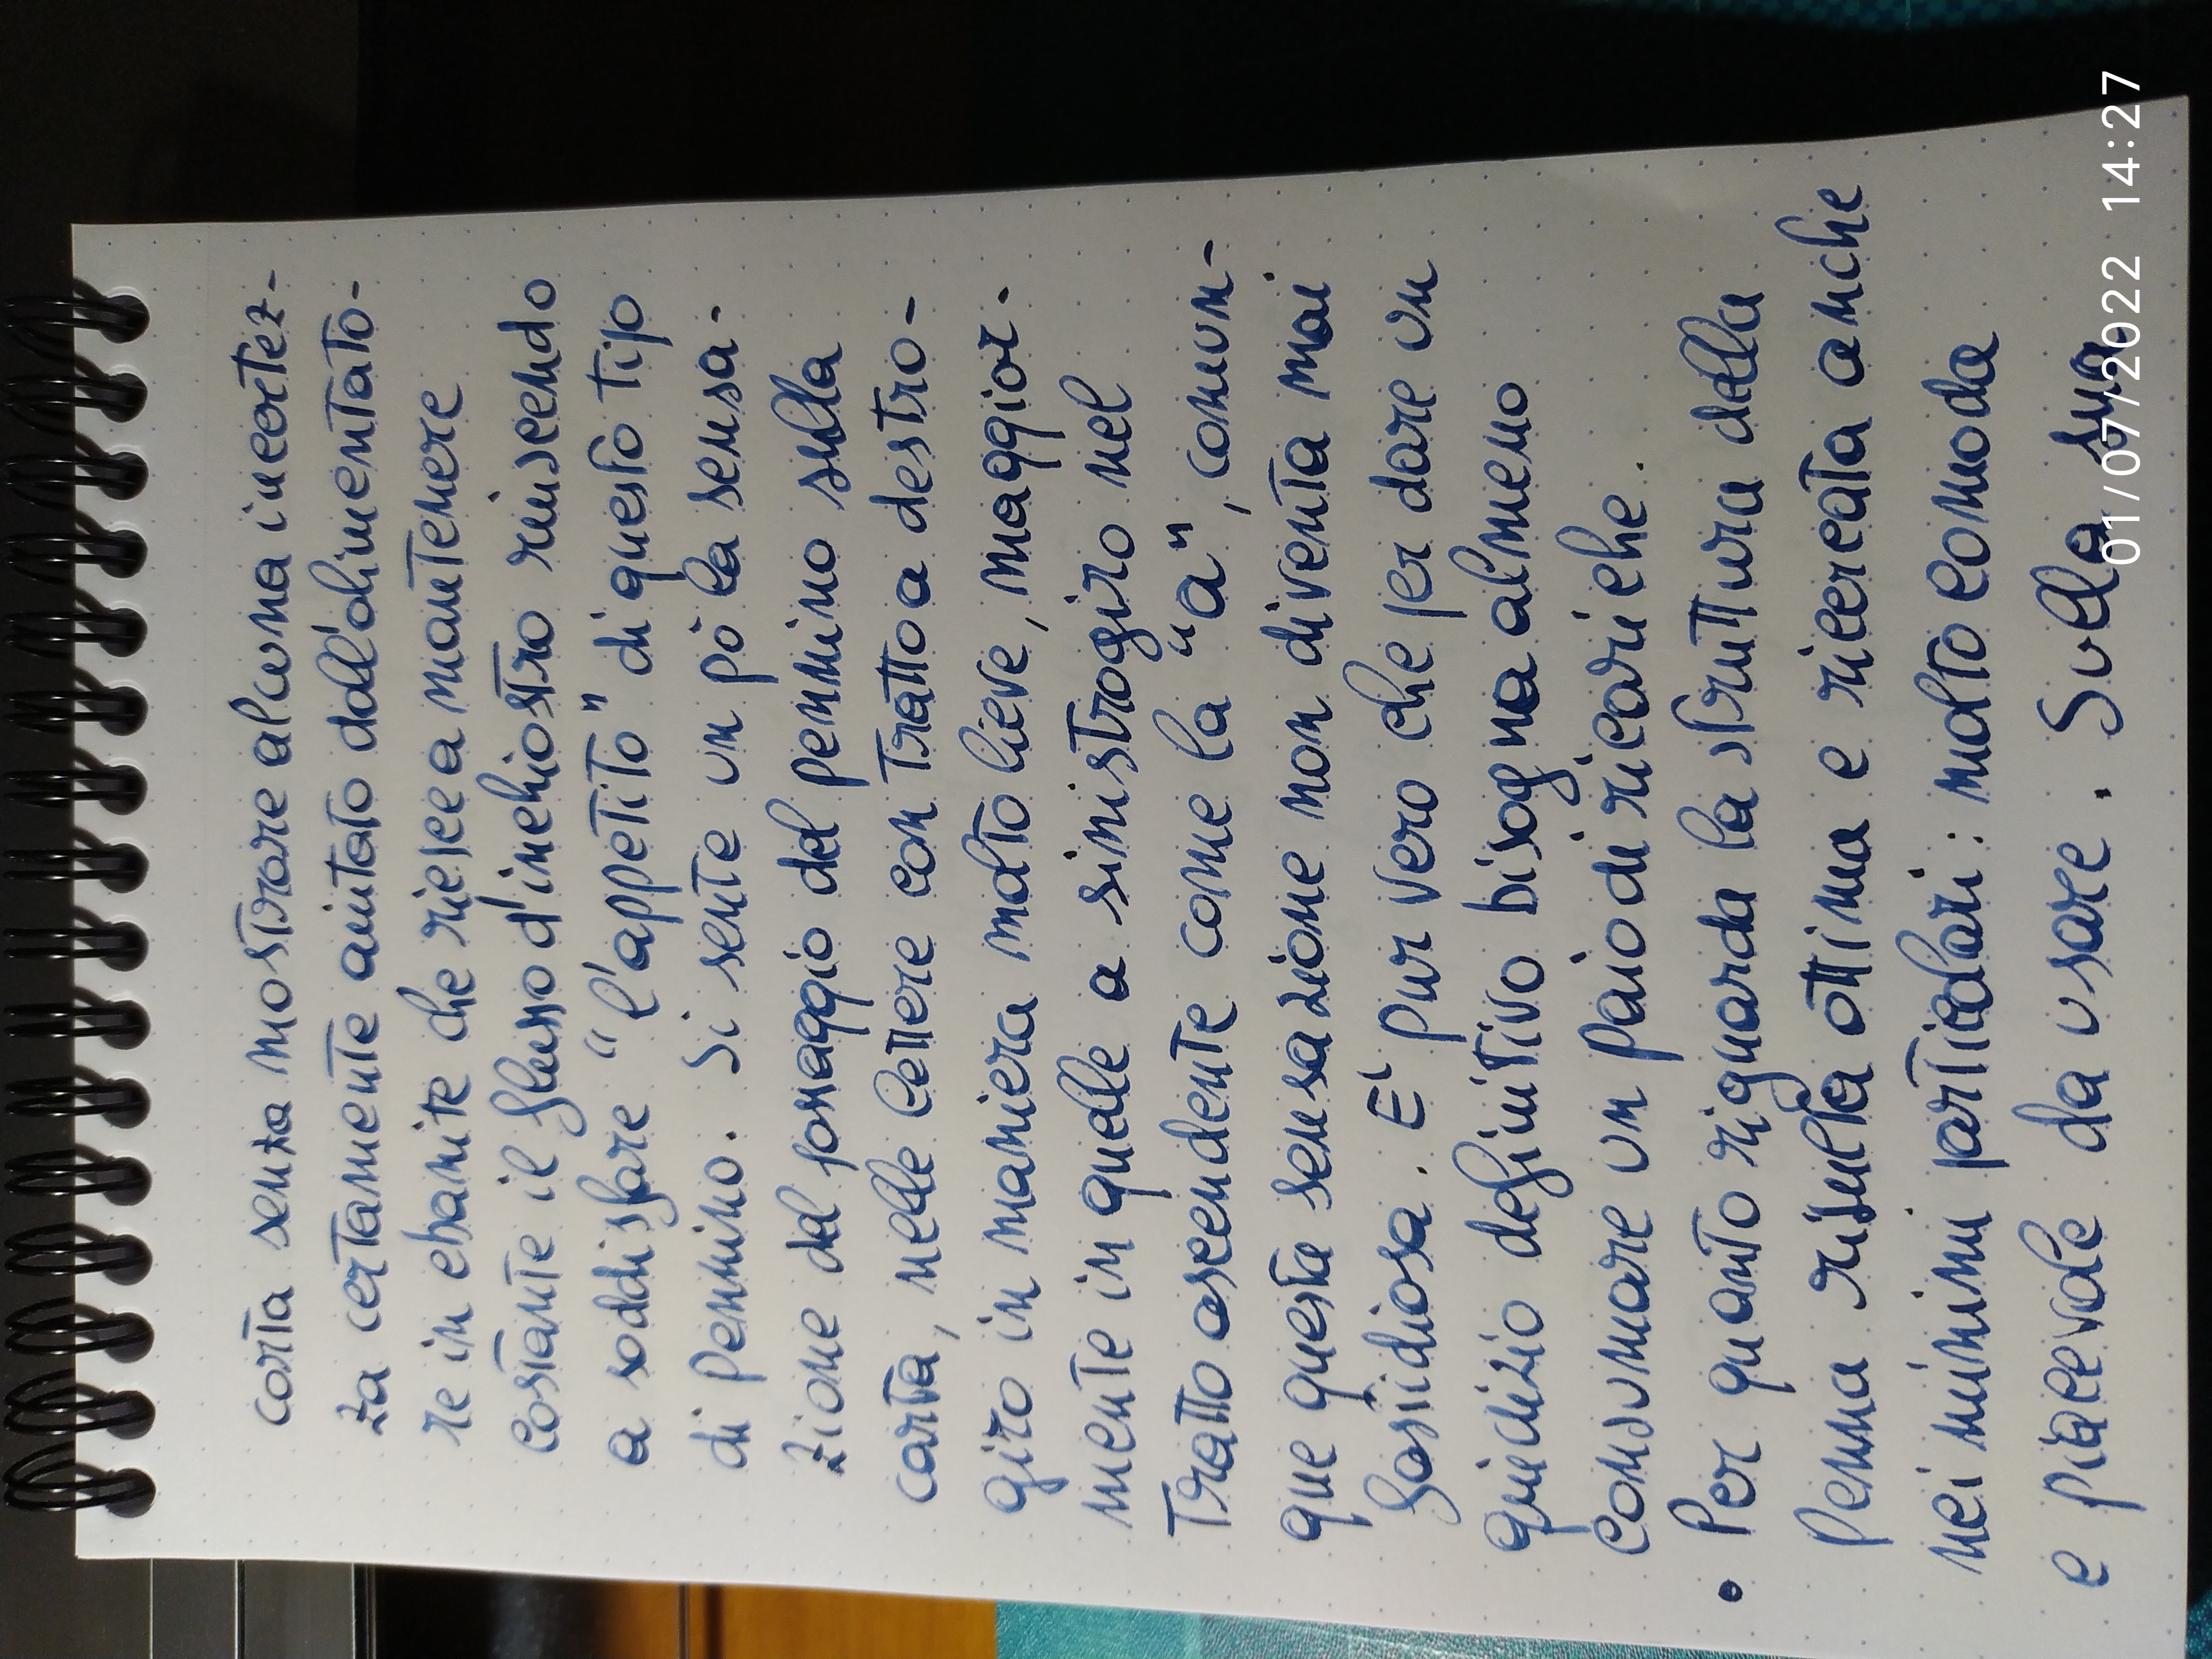 carta senza mostrare alcuna incertez-
za certamente aiutato dall'alimentato-
re in ebanite che riesce a mantenere
costante il flusso d'inchiostro riuscendo
a soddisfare "l'appetito" di questo tipo
di pennino. Si sente un pò la sensa-
zione del passaggio del pennino sulla
carta, nelle lettere con tratto a destro-
giro in maniera molto lieve, maggior-
mente in quelle a sinistrogiro nel
tratto ascendente come la "a", comun-
que questa sensazione non diventa mai
fastidiosa. E' pur vero che per dare un
giudizio definitivo bisogna almeno
consumare un paio di ricariche.
• Per quanto riguarda la struttura della
penna risulta ottima e ricercata anche
nei minimi particolari: molto comoda
e piacevole da usare. Sulla sua
01/07/2022 14:27